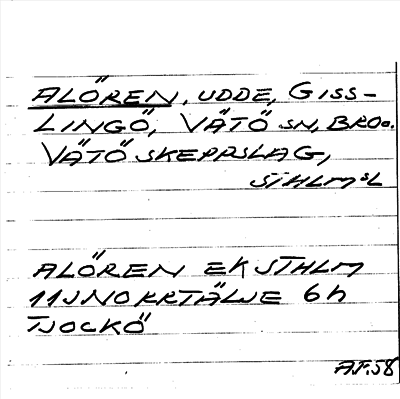 ALÖREN, UDDE, GISS-
LINGÖ, VÄTÖ SN, BRO o.
VÄTÖ SKEPPSLAG,
STHLMSL
ALÖREN EK STHLM
11J NORRTÄLJE 6h
TJOCKÖ
AP.58